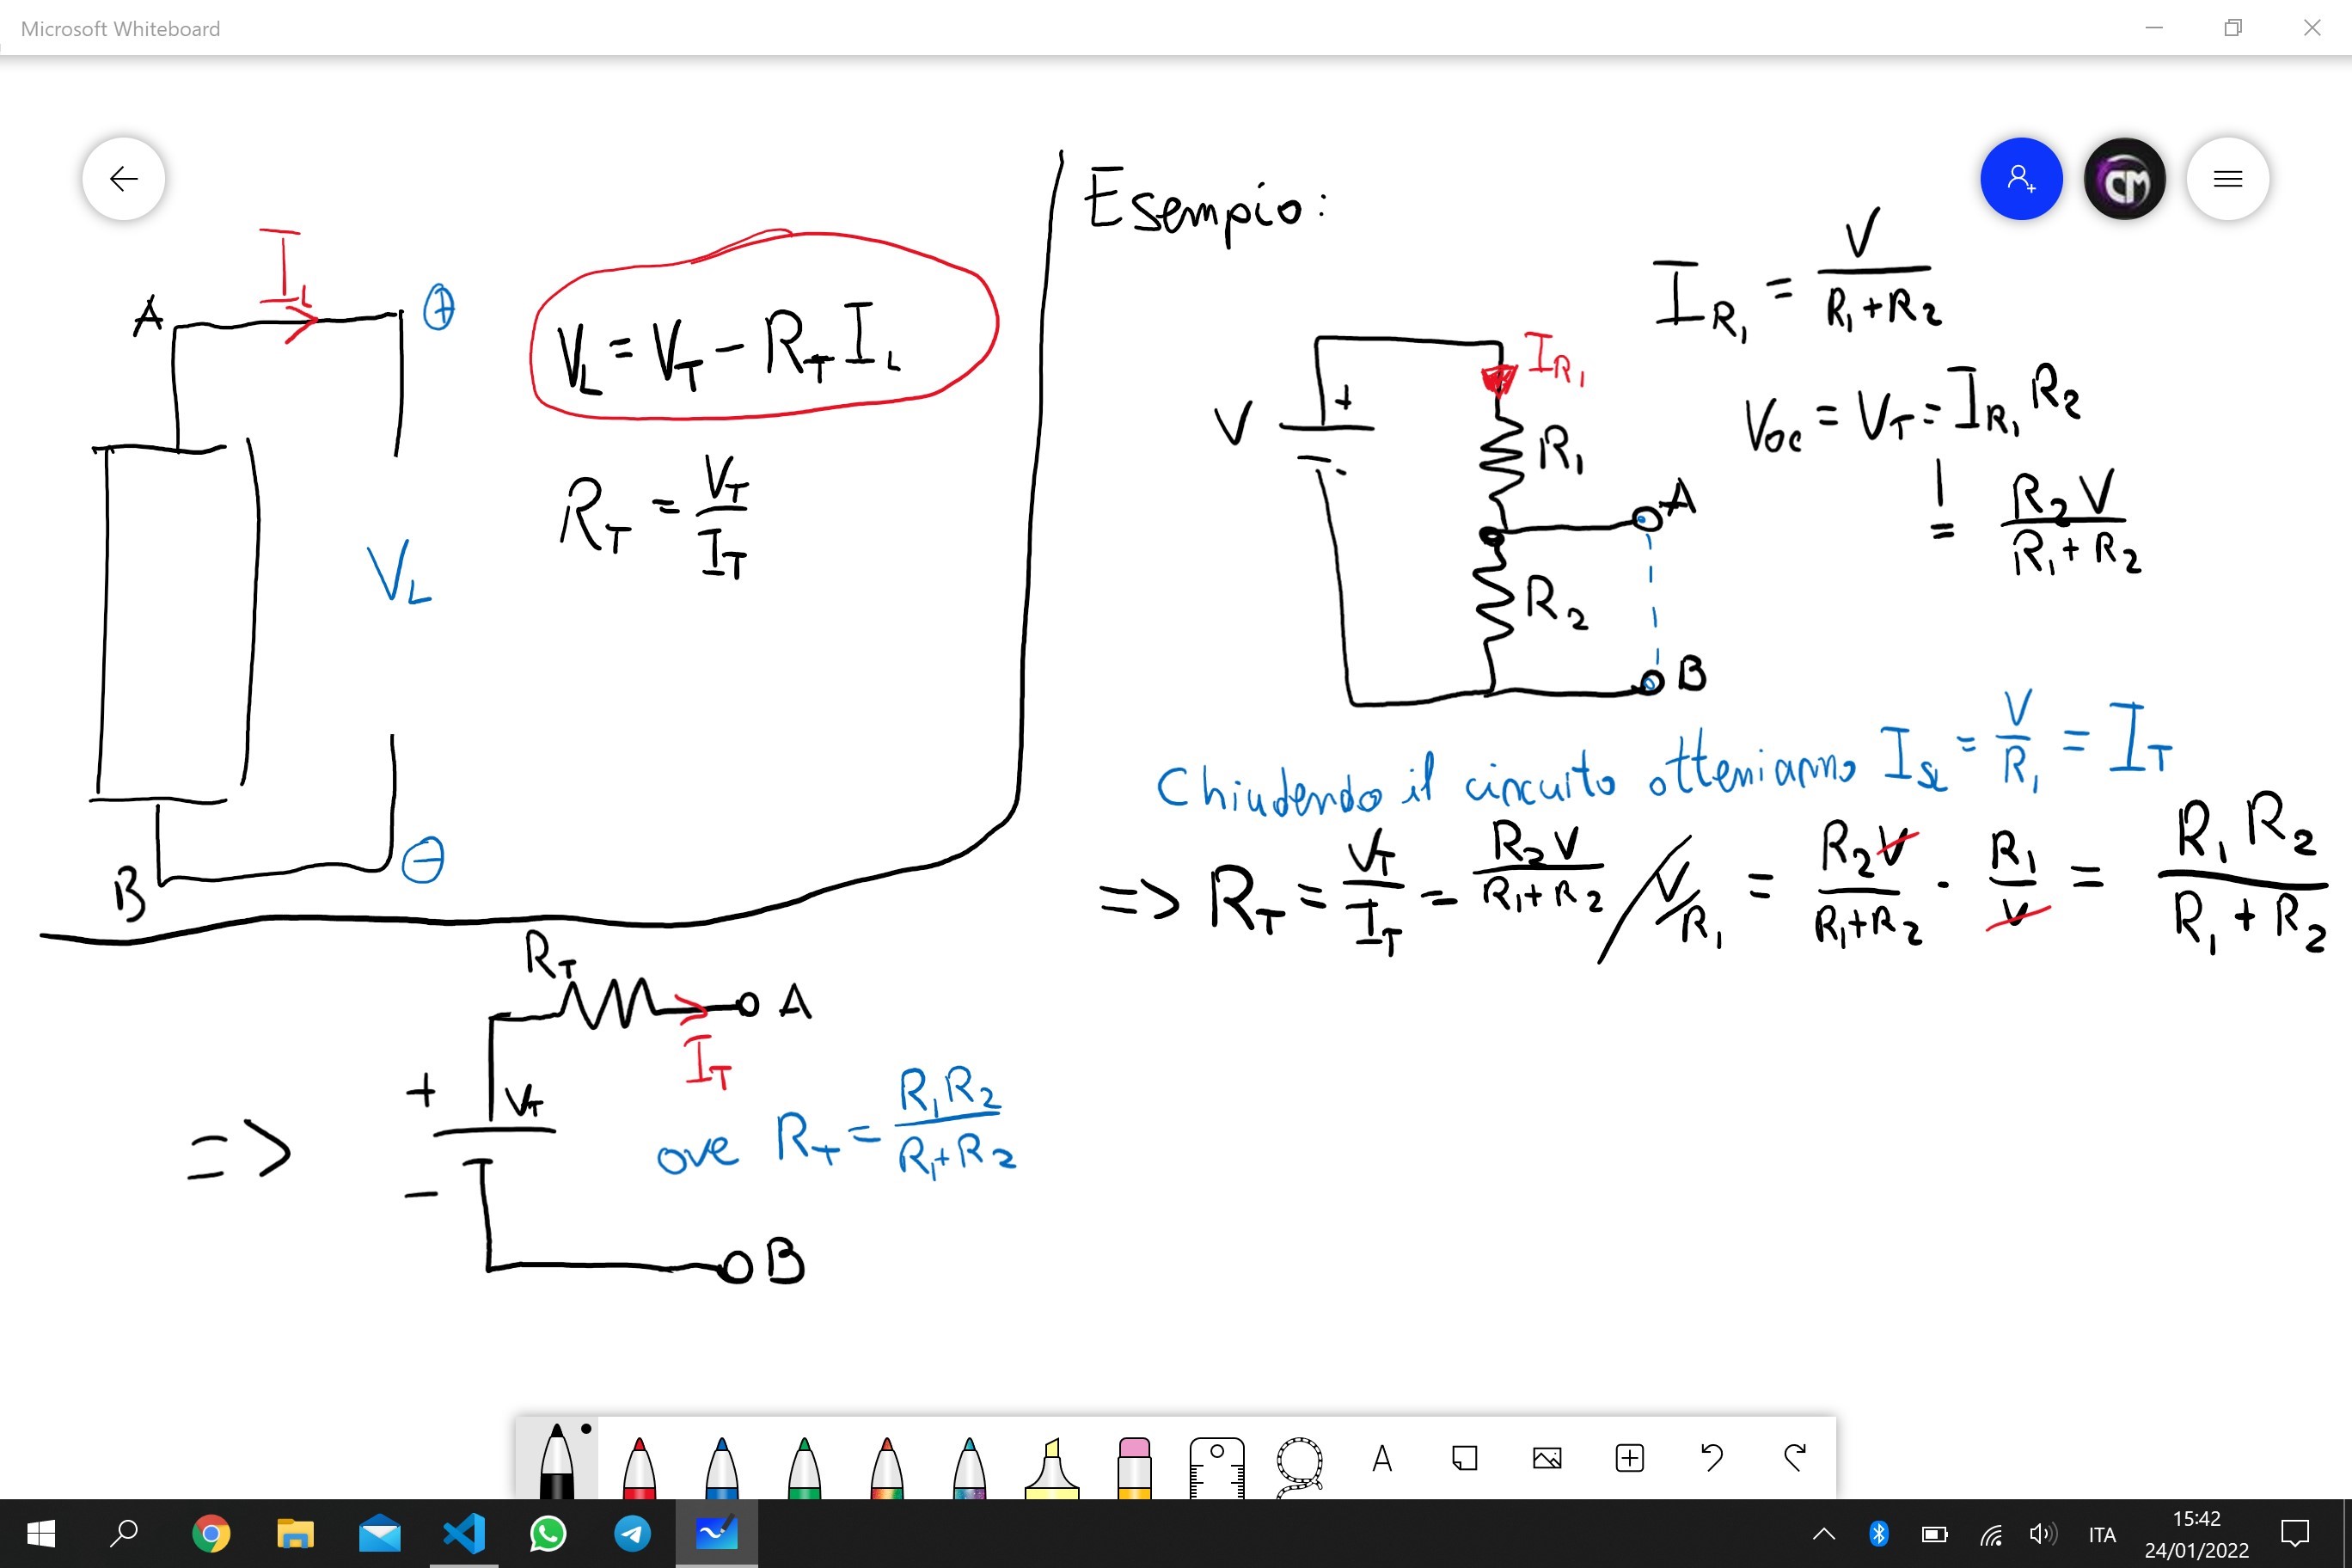 Microsoft Whiteboard
I_L
A
⊕
V_L = V_T − R_T I_L
R_T = V_T / I_T
V_L
B
⊖
Esempio:
I_R1 = V / (R1 + R2)
V
+
I_R1
R1
A
R2
B
V_OC = V_T = I_R1 R2
= R2 V / (R1 + R2)
Chiudendo il circuito otteniamo I_sc = V / R1 = I_T
=> R_T = V_T / I_T = R2 V / (R1 + R2) / V / R1 = R2 V / (R1 + R2) · R1 / V = R1 R2 / (R1 + R2)
R_T
A
I_T
+
V_T
=>
ove R_T = R1 R2 / (R1 + R2)
−
B
A
CM
ITA
15:42
24/01/2022